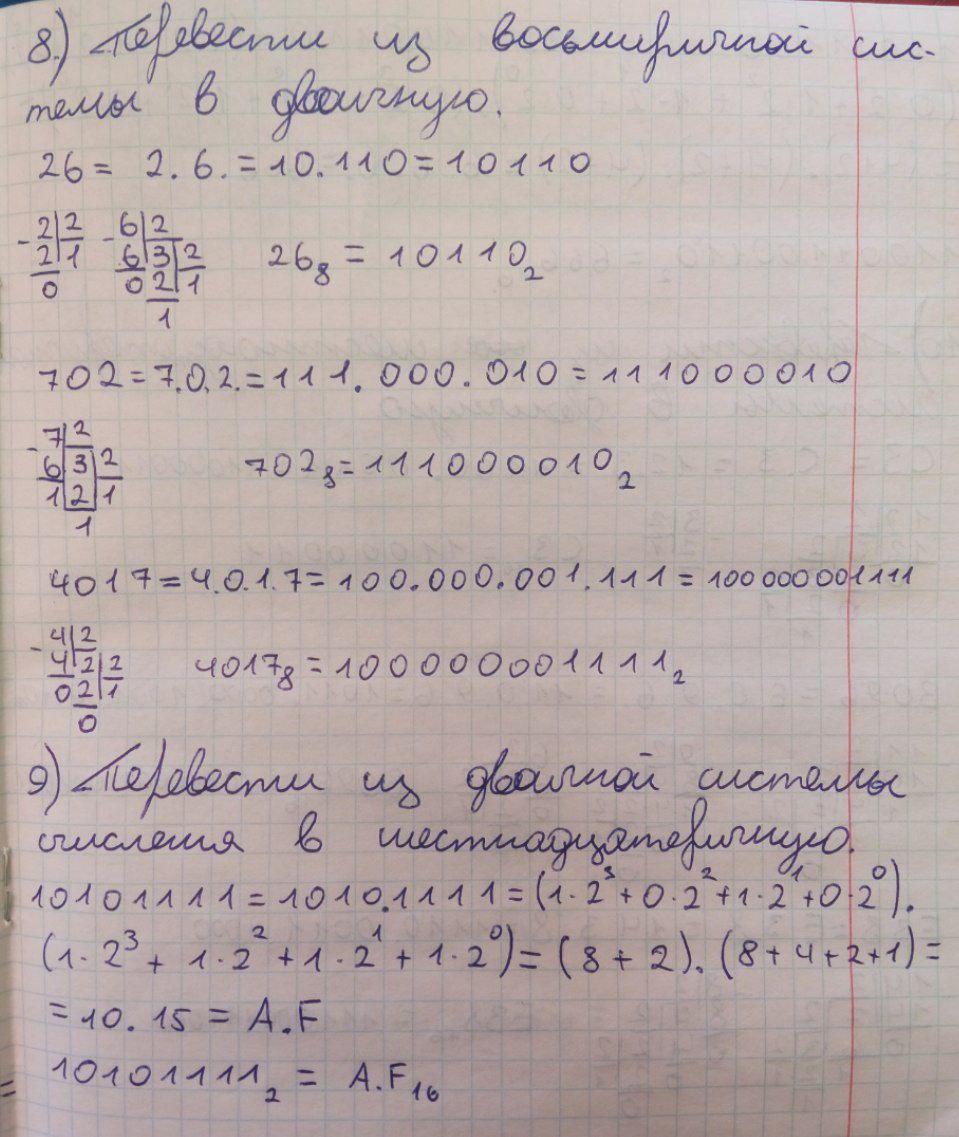 8.) Перевести из восьмиричной сис-
темы в двоичную.
26 = 2. 6. = 10.110 = 10110
- 2|2 - 6|2
2|1 6|3|2 26₈ = 10110₂
0 0|2|1
1
702 = 7.0.2. = 111. 000. 010 = 111000010
- 7|2
6|3|2 702₈ = 111000010₂
1|2|1
1
4017 = 4.0.1.7 = 100.000.001.111 = 100000001111
- 4|2
4|2|2 4017₈ = 100000001111₂
0 2|1
0
9) Перевести из двоичной системы
счисления в шестнадцатеричную.
10101111 = 1010.1111 = (1·2³ + 0·2² + 1·2¹ + 0·2⁰).
(1·2³ + 1·2² + 1·2¹ + 1·2⁰) = (8 + 2). (8 + 4 + 2 + 1) =
= 10. 15 = A.F
= 10101111₂ = A.F₁₆